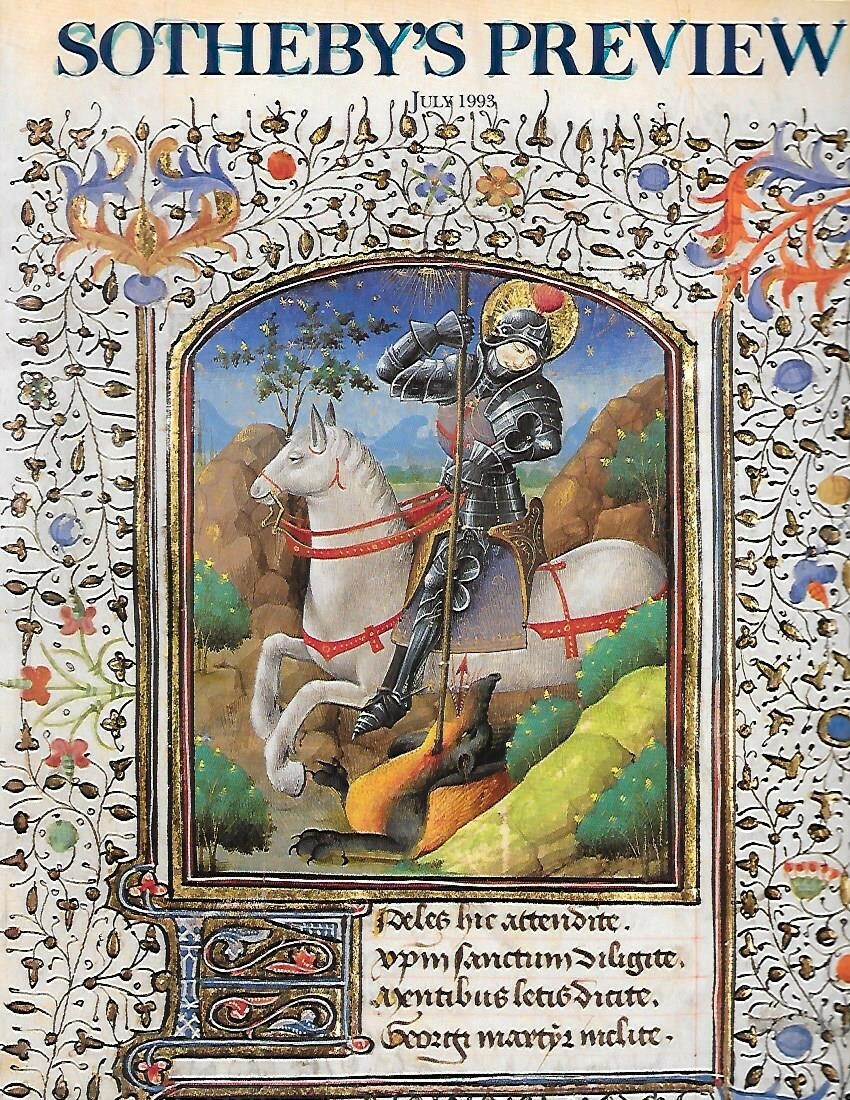 SOTHEBY'S PREVIEW
JULY 1993
Fideles hic attendite.
xpm sanctum diligite.
Mentibus letis dicite,
Georgi martyr inclite.